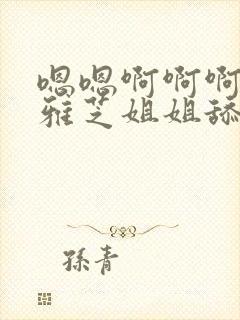 嗯嗯啊啊啊
雅芝姐姐舔
孫青